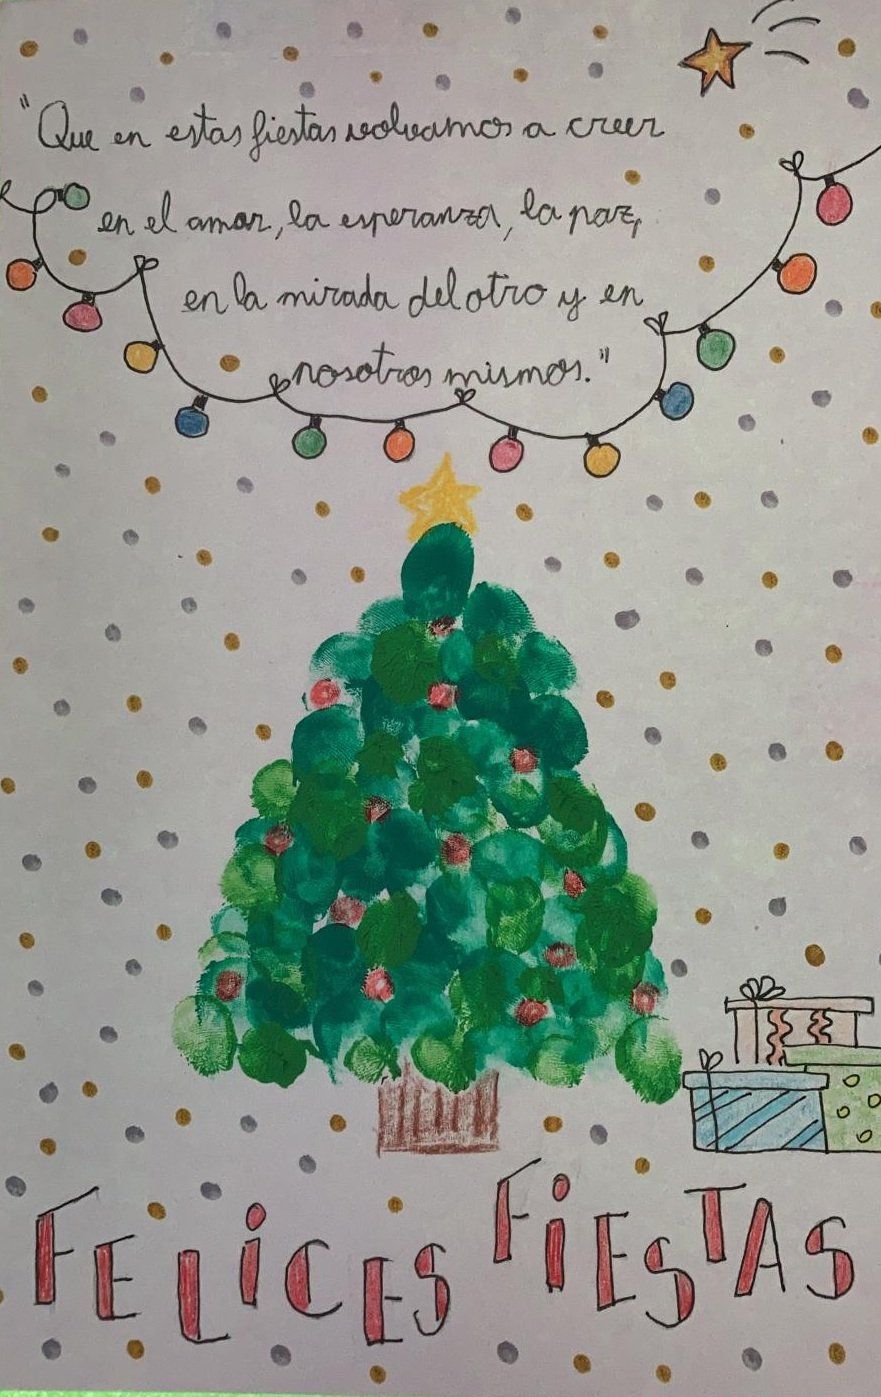 "Que en estas fiestas volvamos a creer
en el amor, la esperanza, la paz,
en la mirada del otro y en
nosotros mismos."
FELICES FIESTAS